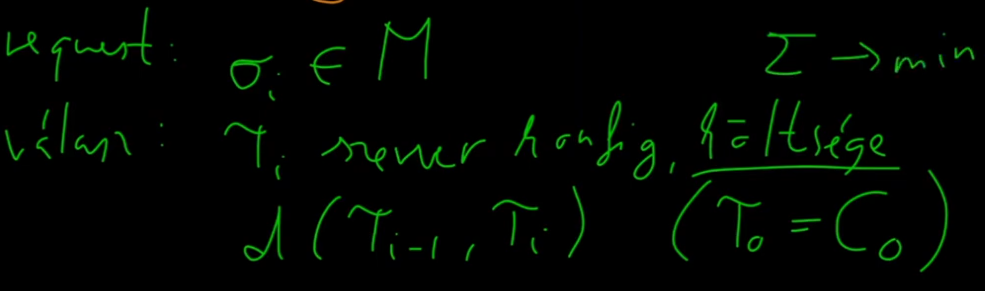 request: σᵢ ∈ M Σ → min
válasz: Tᵢ szerver konfig, költsége
d(Tᵢ₋₁, Tᵢ) (T₀ = C₀)